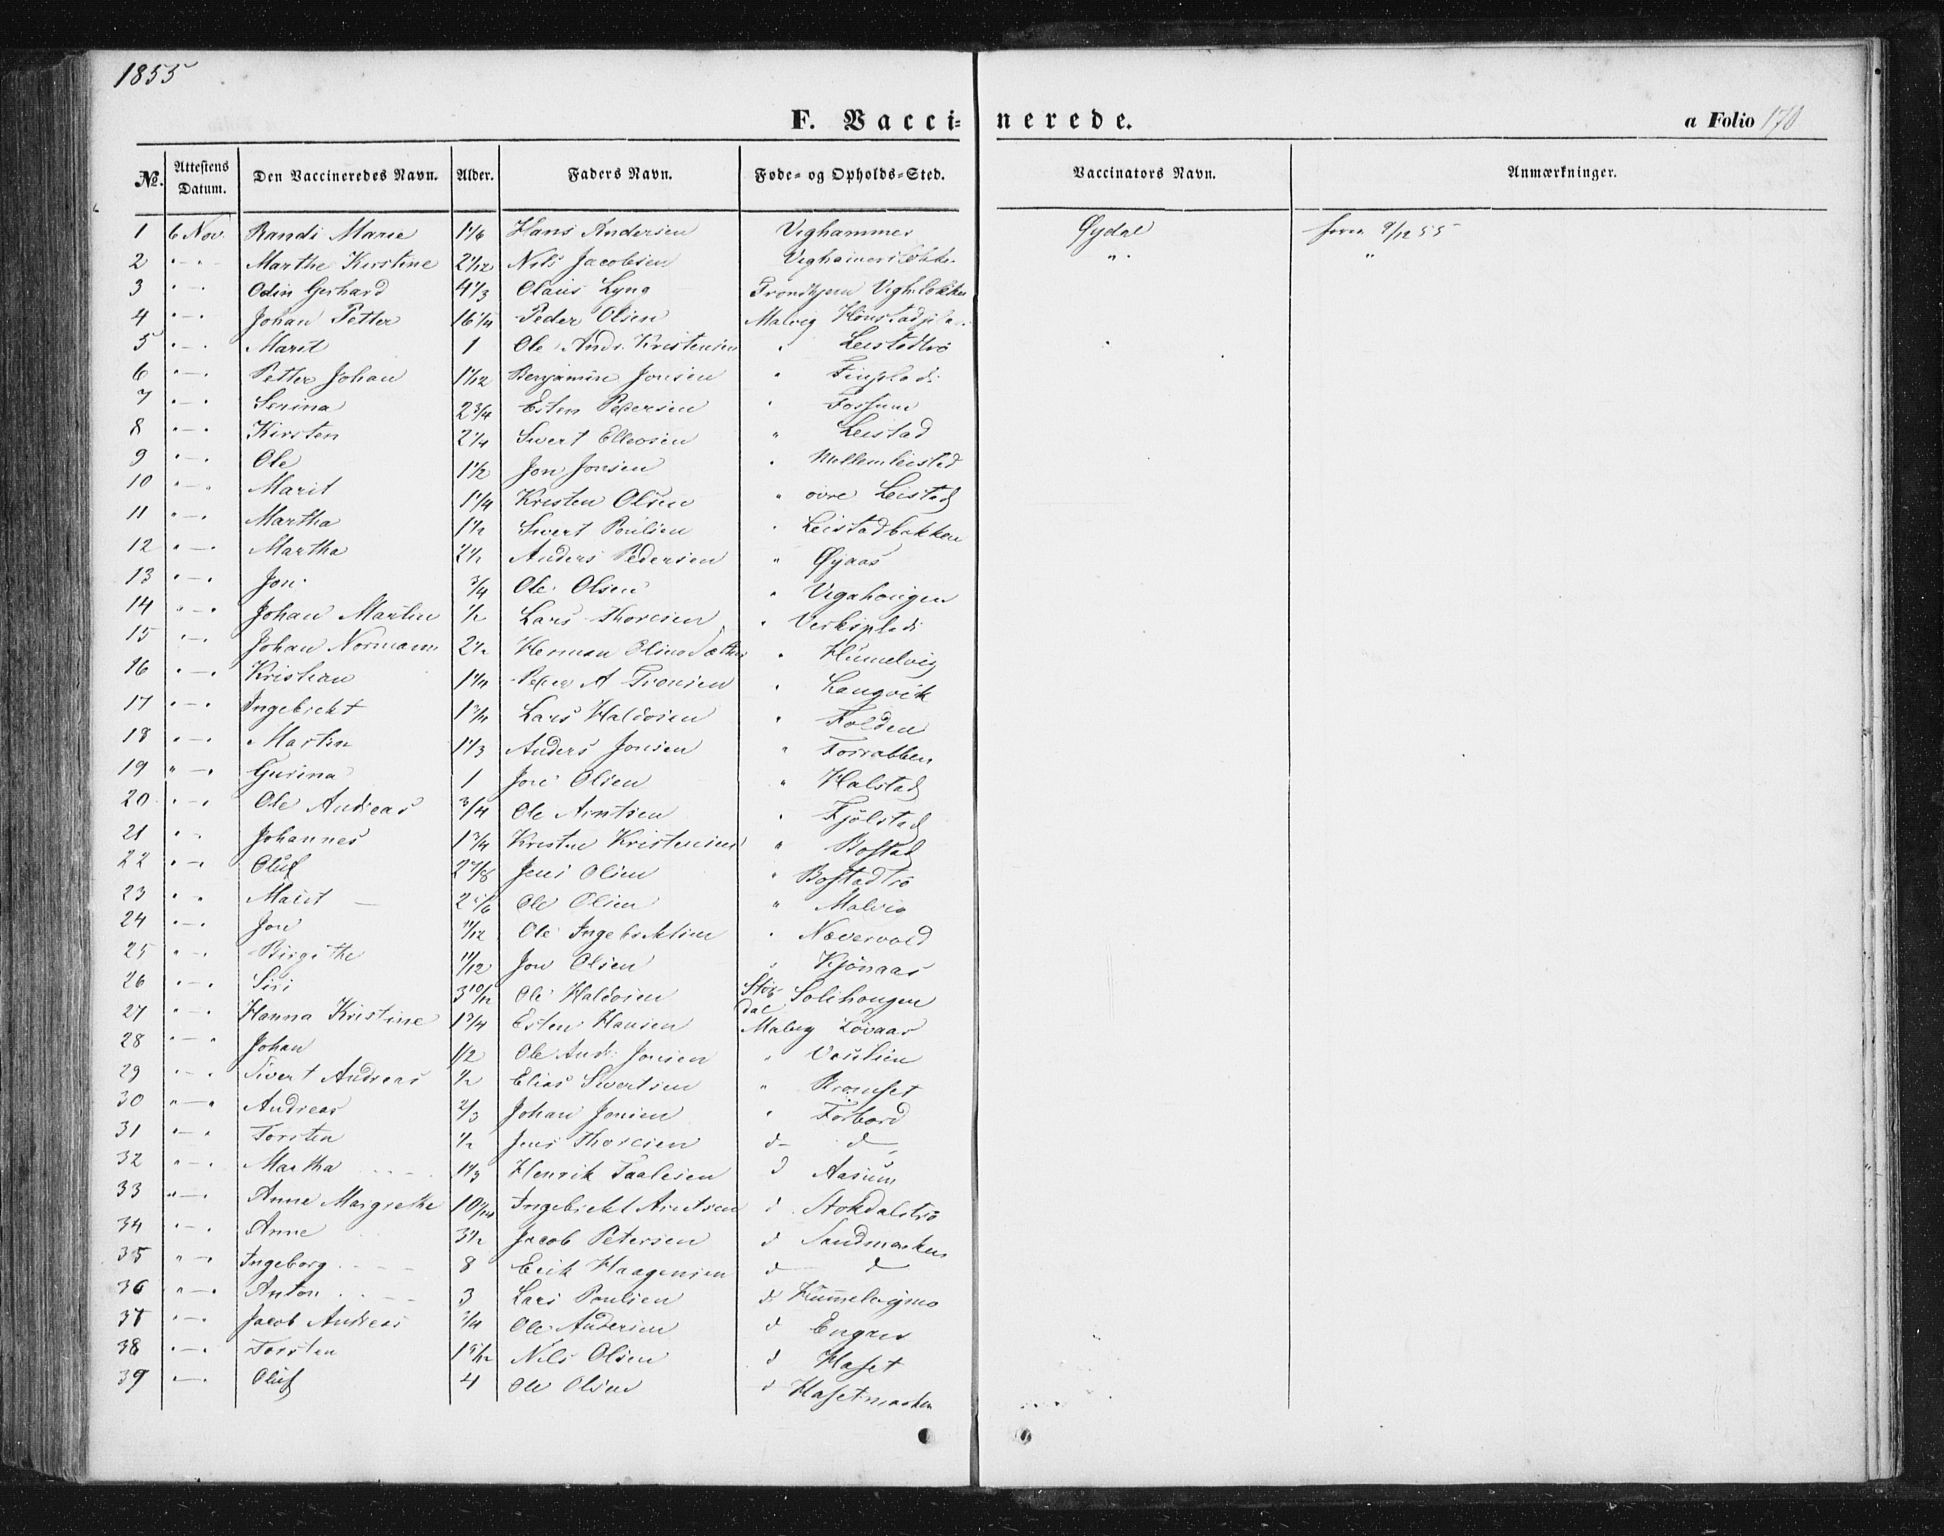 1855
F. Vaccinerede.
a Folio 170
№. Attestens Datum. Den Vaccineredes Navn. Alder. Faders Navn. Føde- og Opholds-Sted. Vaccinators Navn. Anmærkninger.
1 6 Nov. Randi Marie 1 1/6 Hans Andersen Vighammer Øydal 9/12 55
2 " — " Marthe Kirstine 2 1/12 Nils Jacobsen " "
3 " — " Odin Gerhard 4 1/3 Olaus Lyng Trondhjem
4 " — " Johan Petter 16 1/4 Peder Olsen Malvig
5 " — " Marit 1 Ole Andr. Kristensen " Leistadtrö
6 " — " Petter Johan 1 1/12 Benjamin Jonsen "
7 " — " Serina 2 3/4 Esten Pedersen " Fossum
8 " — " Kirsten 2 1/4 Sivert Ellevsen " Leistad
9 " — " Ole 1 1/2 Jon Jonsen " Mellemleistad
10 " — " Marit 1 1/4 Kristen Olsen " övre Leistad
11 " — " Martha 1 1/2 Sivert Poulsen " Leistadbakken
12 " — " Martha 2 1/2 Anders Pedersen " Øyaas
13 " — " Jon 3/4 Ole Olsen " Vigahougen
14 " — " Johan Martin 1/2 Lars Thoresen " Verksplads
15 " — " Johan Normann 2 1/2 Herman " Humelvig
16 " — " Kristian 1 1/4 Peter A Tronsen " Langvik
17 " — " Ingebrekt 1 3/4 Lars Haldosen " Folden
18 " — " Martin 1 1/3 Anders Jonsen " Torvabben
19 " — " Gurina 1 Jon Olsen " Halstad
20 " — " Ole Andreas 3/4 Ole Arntsen " Fjölstad
21 " " Johannes 1 3/4 Kristen Kristensen " Bostad
22 " — " Oluf 2 7/8 Jens Olsen " Bostadtrö
23 " " Marit 2 5/6 Ole Olsen " Malvig
24 " — " Jon 11/12 Ole Ingebrektsen " Nævervold
25 " — " Birgithe 11/12 Jon Olsen " Kjönaas
26 " — " Siri 3 10/12 Ole Haldosen Stördal Solihougen
27 " — " Hanna Kristine 1 3/4 Esten Hansen Malvig Lövaas
28 " — " Johan 1/2 Ole Andr. Jonsen " Veslien
29 " — " Sivert Andreas 1/2 Elias Sivertsen " Kromset
30 " — " Andreas 2/3 Johan Jonsen " Forbord
31 " — " Torsten 1/2 Jens Thoresen d — d
32 " — " Martha 1 1/3 Henrik Paalesen d Aasum
33 " — " Anne Margrethe Ingebrekt Arntsen d Stokdalströ
34 " — " Anne 3 1/2 Jacob Petersen d Sandmarken
35 " — " Ingeborg 8 Erik Haagensen d d
36 " — " Anton 3 Lars Poulsen d Hummelvigmo
37 " — " Jacob Andreas 3/4 Ole Andersen d Engan
38 " — " Torsten Nils Olsen d Haset
39 " — " Oluf 4 Ole Olsen d Hasetmarken